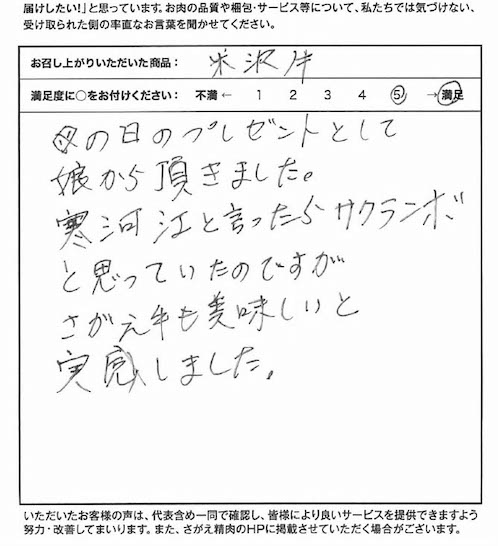 届けしたい！」と思っています。お肉の品質や梱包・サービス等について、私たちでは気づけない、
受け取られた側の率直なお言葉を聞かせてください。
お召し上がりいただいた商品： 米沢牛
満足度に○をお付けください： 不満 ← 1 2 3 4 5 → 満足
母の日のプレゼントとして
娘から頂きました。
寒河江と言ったらサクランボ
と思っていたのですが
さがえ牛も美味しいと
実感しました。
いただいたお客様の声は、代表含め一同で確認し、皆様により良いサービスを提供できますよう
努力・改善してまいります。また、さがえ精肉のHPに掲載させていただく場合がございます。